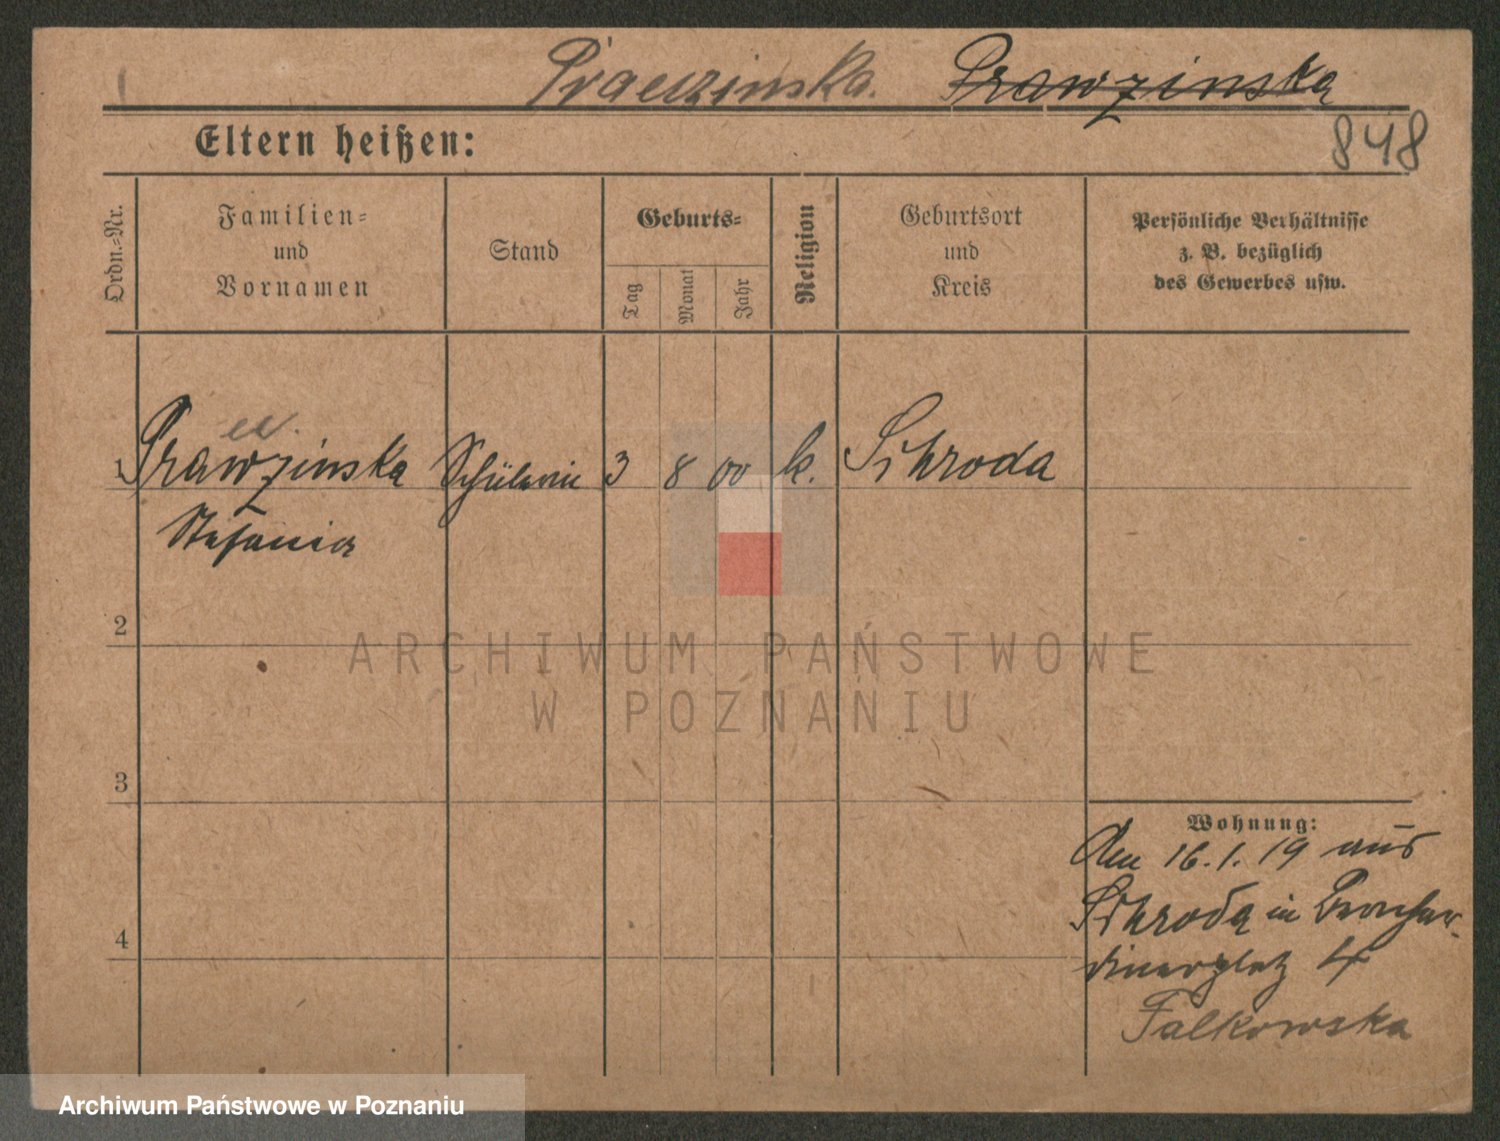 Praczinska. Prawzinska
848
Eltern heißen:
Ordn.-Nr.
Familien-
und
Vornamen
Stand
Geburts-
Tag
Monat
Jahr
Religion
Geburtsort
und
Kreis
Persönliche Verhältnisse
z. B. bezüglich
des Gewerbes usw.
1 Prawzinska Schülerin 3 8 00 k. Schroda
Stefania
2
3
4
Wohnung:
Den 16.1.19 aus
Schroda in
4
Falkowska
ARCHIWUM PAŃSTWOWE
W POZNANIU
Archiwum Państwowe w Poznaniu